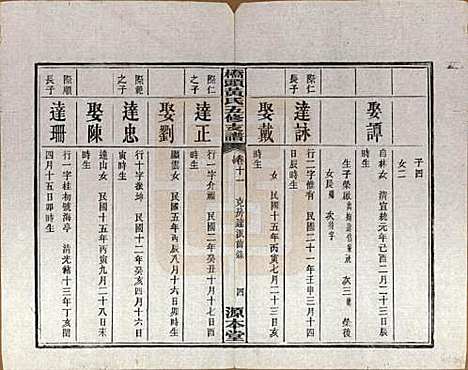 子四
女二
娶譚
自林女 清宣統元年己酉二月二十三日
時生
生子榮
次三 榮後
女長
次二
際仁
長子
達詠
行一字惟有 民國二十一年壬申三月十四
日辰時生
娶戴
女 民國十五年丙寅七月二十三日亥
時生
橋頭黃氏五修支譜
卷十一
克房達派齒錄
四
源本堂
際仁
之子
達正
行一字 民國二年癸丑十月十七日酉
時生
娶劉
顯雲女 民國五年丙辰八月十六日亥
時生
際範
之子
達忠
行十字振坤 民國十二年癸亥四月十六日
寅時生
娶陳
達山女 民國十五年丙寅九月二十八日未
時生
際順
長子
達珊
行一字桂初號海亭 清光緒十三年丁亥閏
四月十五日卯時生